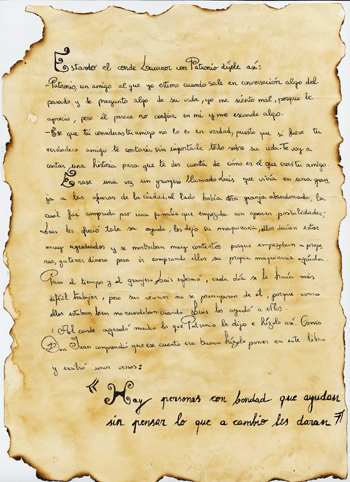 Estando el conde Lucanor con Patronio díjole así:
-Patronio, un amigo al que yo estimo cuando sale en conversación algo del
pasado y le pregunto algo de su vida, yo me siento mal, porque le
aprecio, pero él parece no confiar en mí y me esconde algo.
-Ese que tu consideras tu amigo no lo es en verdad, puesto que si fuese tu
verdadero amigo te contaría sin importarle todo sobre su vida. Te voy a
contar una historia para que te des cuenta de cómo es el que crees tu amigo.
Érase una vez un granjero llamado Luis que vivía en una gran
ja a las afueras de la ciudad, al lado había otra granja abandonada, la
cual fue comprada por una familia que empezaba con apenas posibilidades;
Luis les ofreció toda su ayuda, les dejó su maquinaria, ellos decían estar
muy agradecidos y se mostraban muy contentos porque empezaban a prospe
rar, ya tenían dinero para ir comprando ellos su propia maquinaria agrícola.
Pasó el tiempo y el granjero Luis enfermó, cada día se le hacía más
difícil trabajar, pero sus vecinos no se preocuparon de él, porque como
ellos estaban bien no recordaban cuando Luis les ayudó a ellos.
Al conde agradó mucho lo que Patronio le dijo e hízolo así. Como
Don Juan comprendió que ese cuento era bueno hízolo poner en este libro
y escribió unos versos:
"Hay personas con bondad que ayudan
sin pensar lo que a cambio les darán"